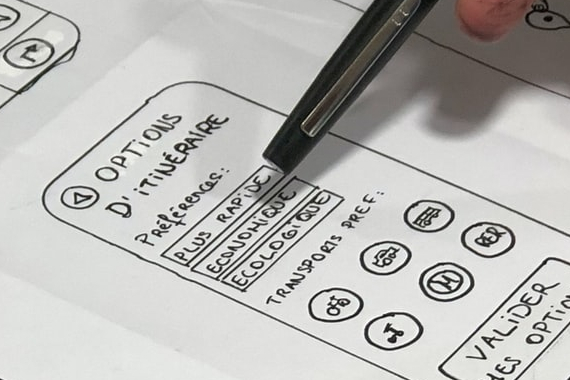 OPTIONS
D'ITINÉRAIRE
Préférences:
PLUS RAPIDE
ECONOMIQUE
ECOLOGIQUE
TRANSPORTS PREF:
RER
M
VALIDER
MES OPTION